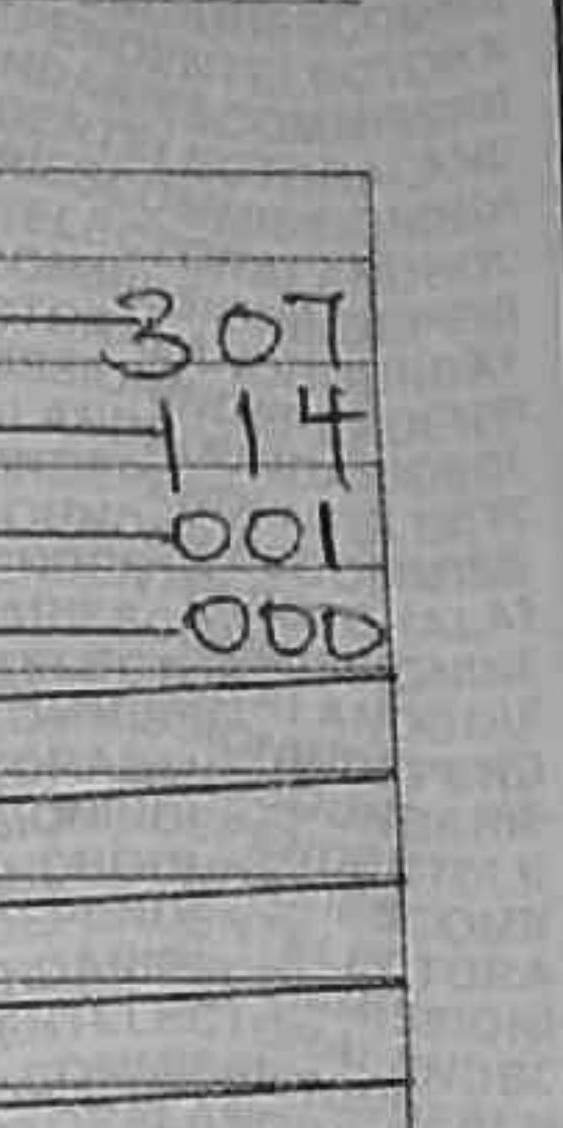 307
114
001
000